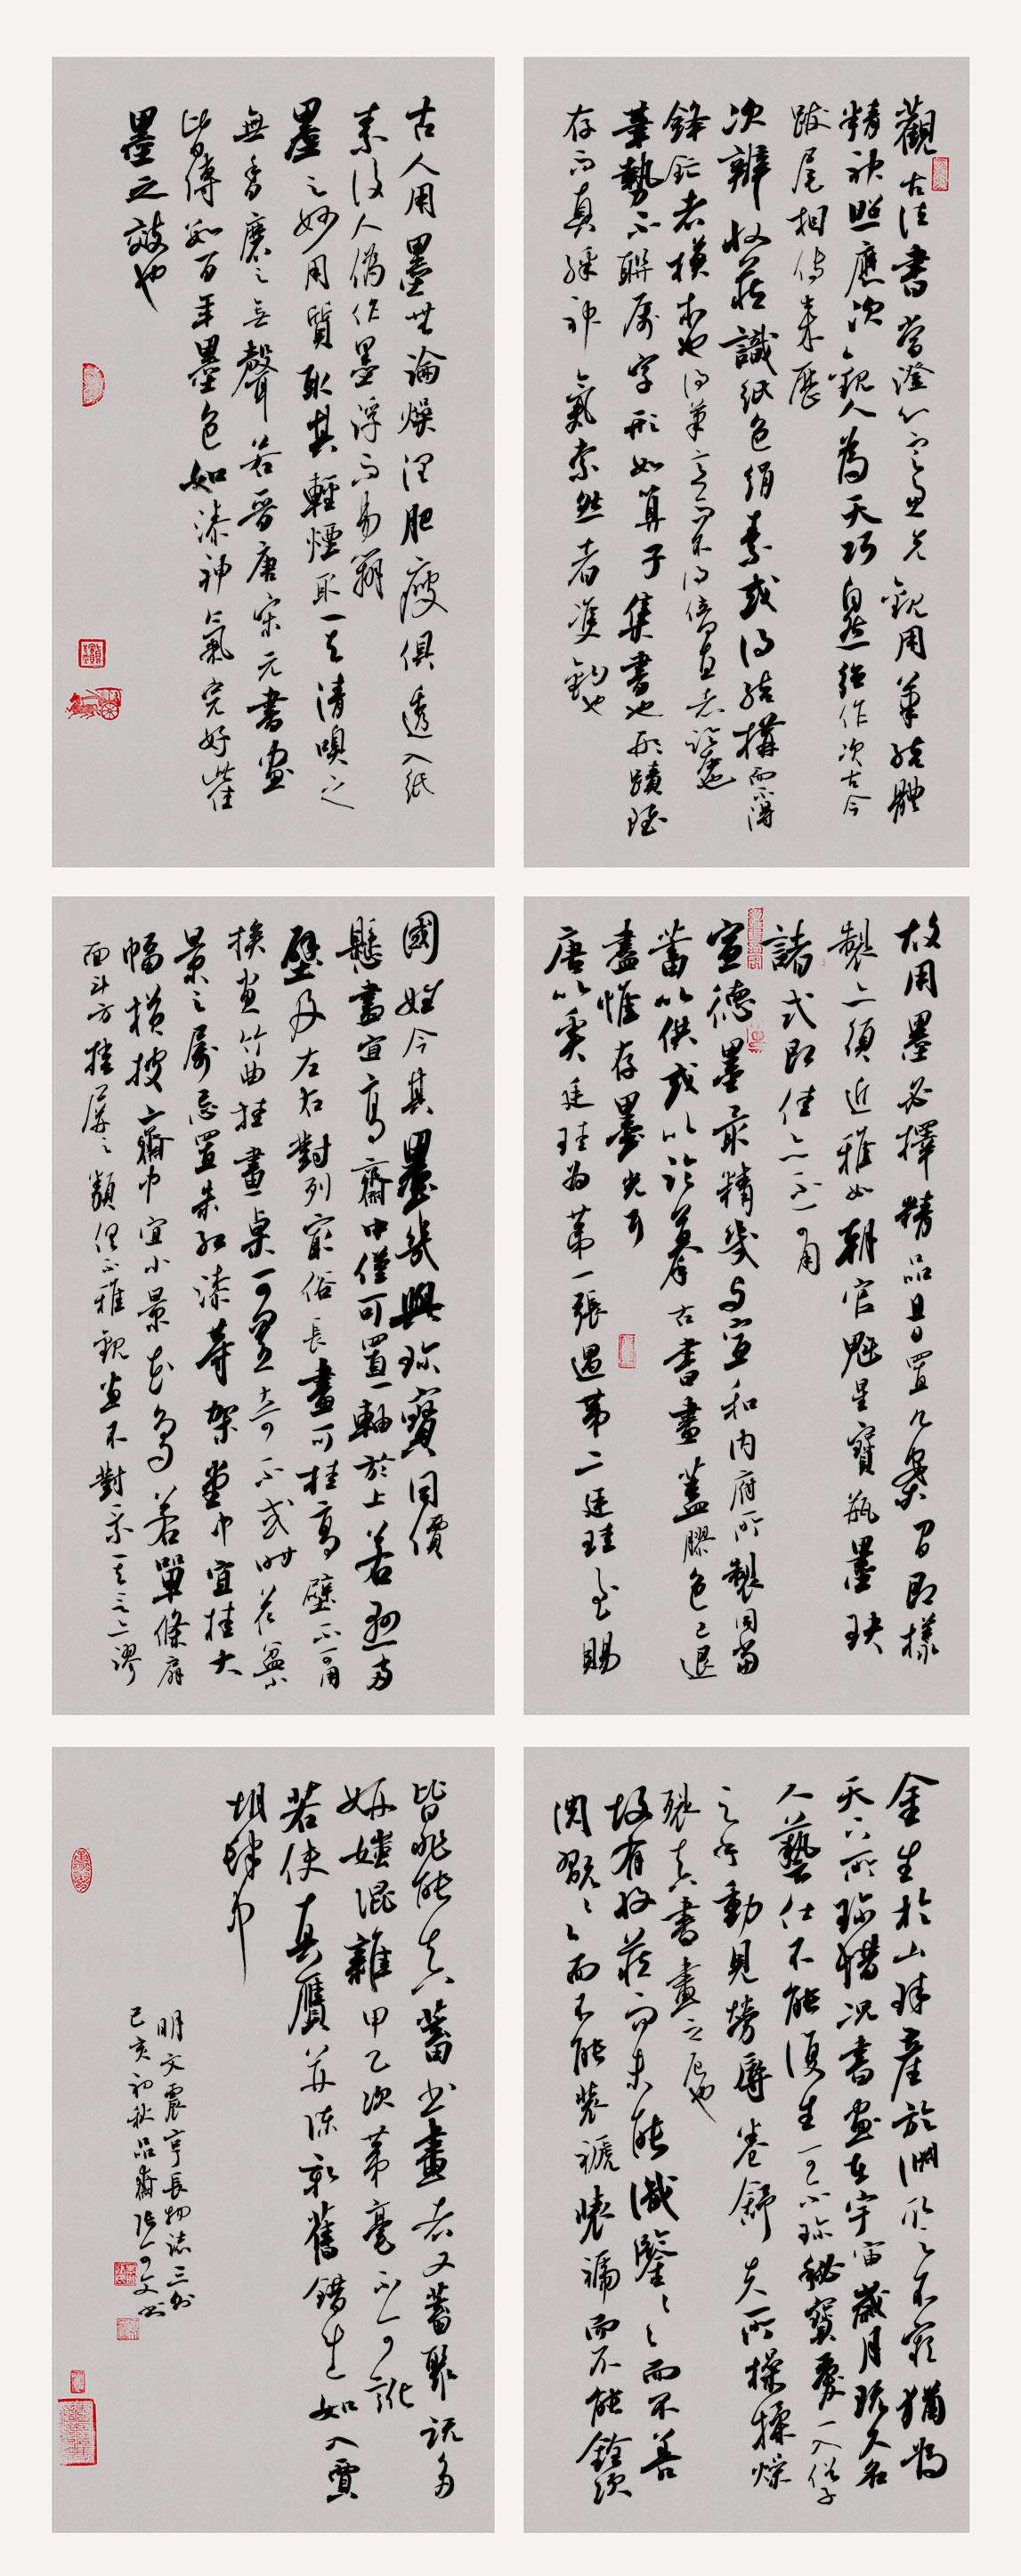 觀古法書當澄心定慮先觀用筆結體
精神照應次觀人為天巧自然強作次古今
跋尾相傳來歷
次辨收藏識紙色絹素或得結構而不得
鋒鋩者模本也得筆意而不得位置者臨本也
筆勢不聯屬字形如算子集書也形蹟雖
存而真彩神氣索然者雙鉤也
古人用墨無論燥潤肥瘦俱透入紙
素後人偽作墨浮而易辨
墨之妙用質取其輕煙取其清嗅之
無香磨之無聲若晉唐宋元書畫
皆傳數百年墨色如漆神氣完好此佳
墨之效也
故用墨必擇精品且日置几案間即樣
製亦須近雅如朝官魁星寶瓶墨玦
諸式即佳亦不可用
宣德墨最精幾與宣和內府所製同當
蓄以供或以臨摹古書畫蓋膠色已退
盡惟存墨光耳
唐以奚廷珪為第一張遇第二廷珪至賜
國姓今其墨幾與珍寶同價
懸畫宜高齋中僅可置一軸於上若懸兩
壁及左右對列最俗長畫可挂高壁不可用
挨畫竹曲挂畫桌可置奇石或時花盆
景之屬忌置朱紅漆等架堂中宜挂大
幅橫披齋中宜小景花鳥若單條扇
面斗方挂屏之類俱不雅觀畫不對景其言亦謬
金生於山珠產於淵取之不窮猶為
天下所珍惜況書畫在宇宙歲月既久名
人藝仕不能復生可不珍秘寶愛一入俗子
之手動見勞辱卷舒失所操揉燥
裂真書畫之厄也
故有收藏而未能識鑒識鑒而不善
閱翫閱翫而不能裝褫裝褫而不能銓次
皆非能真蓄書畫者又蓄聚既多
妍媸混雜甲乙次第毫不可訛
若使真贗並陳新舊錯出如入賈
胡肆中
明文震亨長物誌三則
己亥初秋品齋張可文書